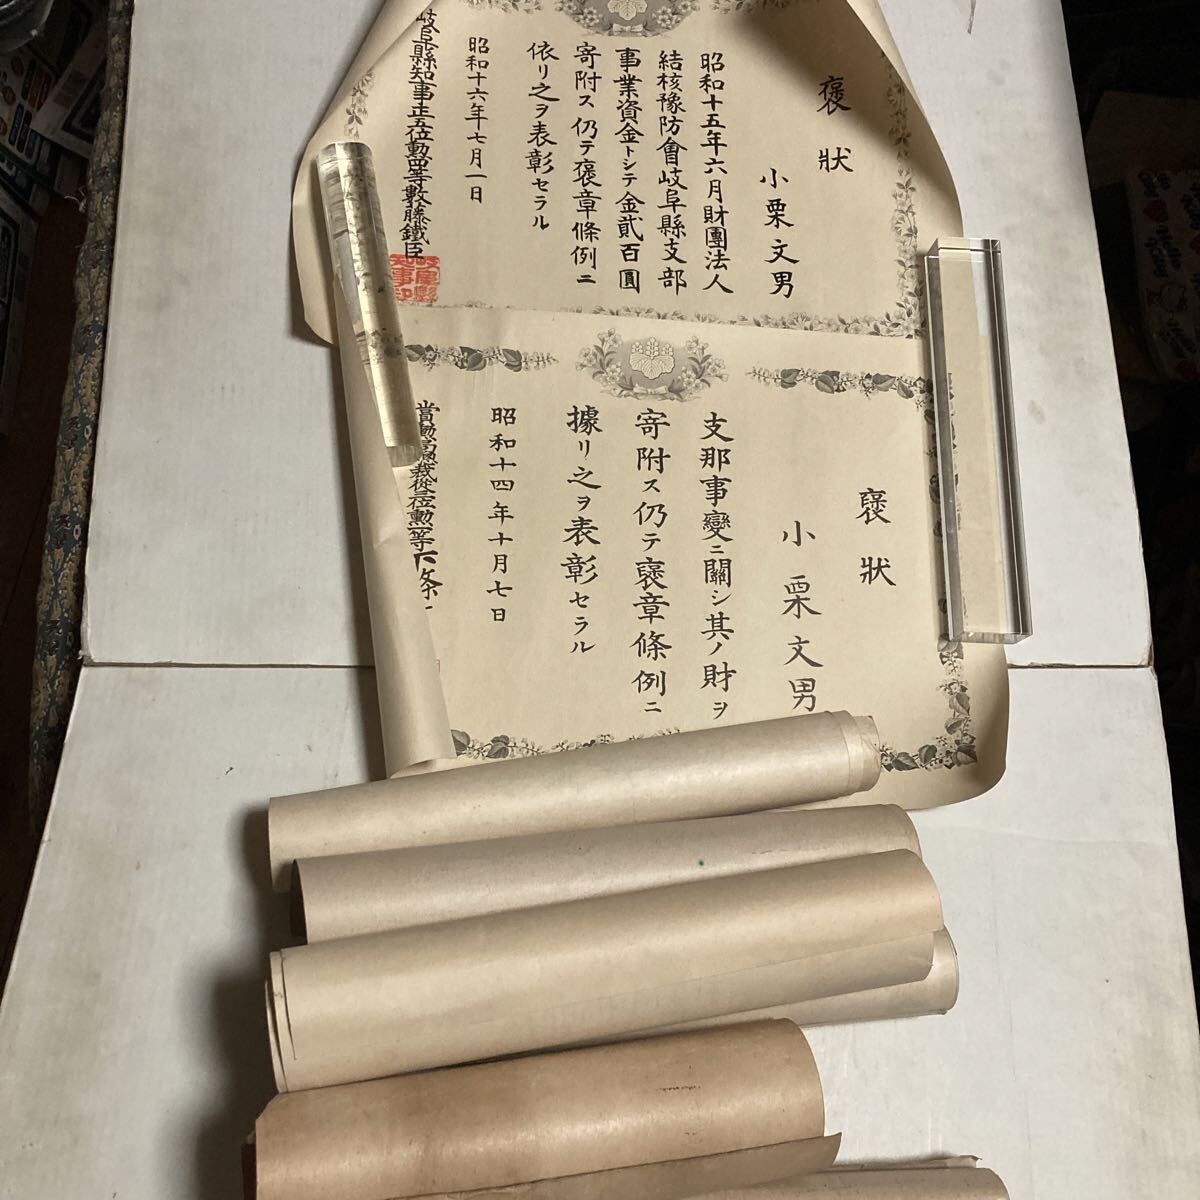 褒狀
小栗文男
昭和十五年六月財團法人
結核豫防會岐阜縣支部
事業資金トシテ金貳百圓
寄附ス仍テ褒章條例ニ
依リ之ヲ表彰セラル
昭和十六年七月一日
岐阜縣知事正五位勲四等藪藤鐵臣
岐阜縣知事印
褒狀
小栗文男
支那事變ニ關シ其ノ財ヲ
寄附ス仍テ褒章條例ニ
據リ之ヲ表彰セラル
昭和十四年十月七日
賞勲局總裁從三位勲一等